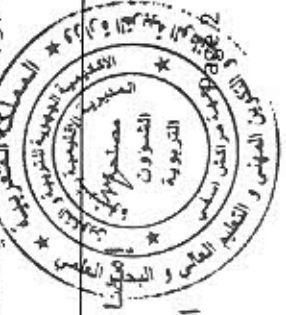 المملكة المغربية
وزارة التربية الوطنية
و التكوين المهني و التعليم العالي و البحث العلمي
الأكاديمية الجهوية للتربية و التكوين
مراكش اسفي
المديرية الإقليمية
مصلحة
الشؤون
التربوية
Page 2